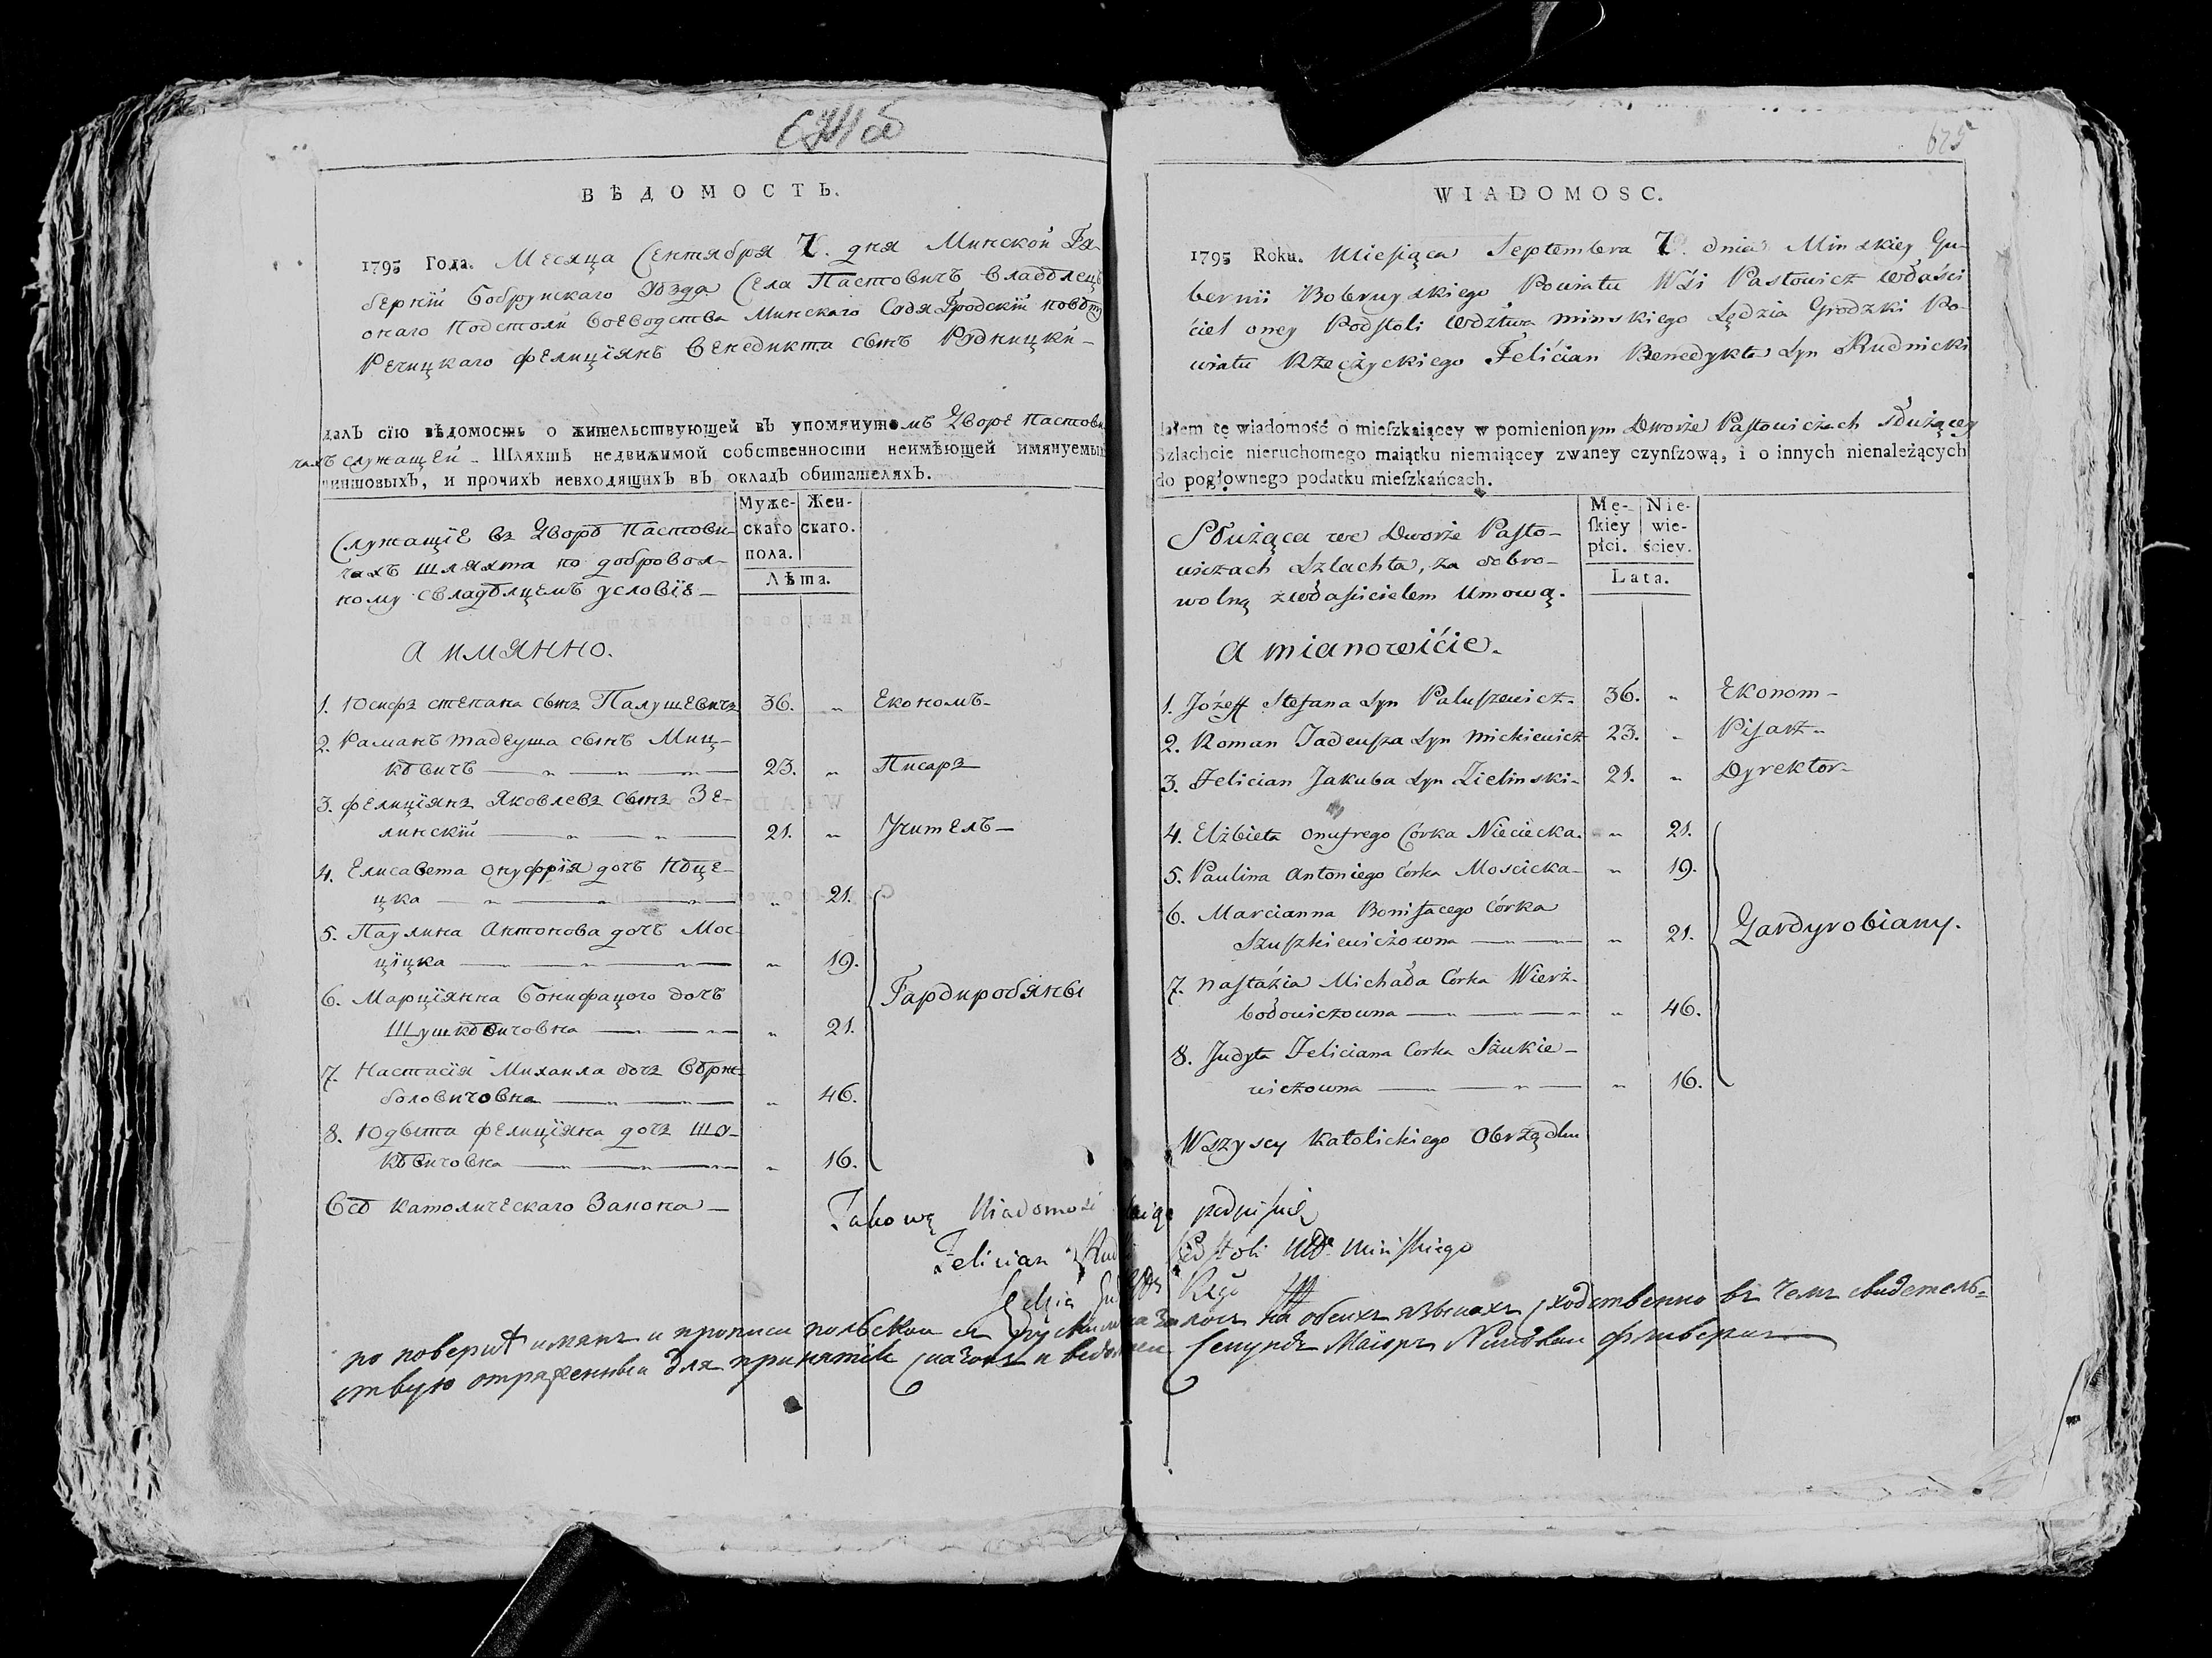 ВѢДОМОСТЬ.
1795 Года. Месяца Сентября 7. дня Минской Гу-
берніи Бобруйскаго Уѣзда Села Пастовичъ Владѣлецъ
онаго Подстоли Воеводства Минскаго Судя Гродскій повѣту
Речицкаго Фелиціянъ Бенедикта сынъ Рудницки-
далъ сїю вѣдомость о жительствующей въ упомянутомъ Дворе Пастови
чахъ служащей - Шляхтѣ недвижимой собственности неимѣющей имянуемы
чиншовыхъ, и прочихъ невходящихъ въ окладъ обитателяхъ.
Муже-
скаго
пола.
Жен-
скаго.
Лѣта.
Служащіе въ Дворѣ Пастови-
чахъ шляхта по доброволь-
ному свладѣлцемъ условію-
а имянно.
1. Юсифъ степана сынъ Палушевичъ 36. „ Економъ-
2. Раманъ тадеуша сынъ Миц-
кѣвичъ 23. „ Писаръ
3. фелиціянъ Яковлевъ сынъ Зе-
линскій 21. „ Учитель-
4. Елисавета онуфрія дочъ Нѣце-
цка „ 21.
5. Паулина Антонова дочъ Мос-
ціцка „ 19.
6. Марціянна Бонифацого дочъ
Шушкѣвичовна „ 21.
Гардиробяны
7. Настасія Михаила дочъ Вѣрж-
боловичовна „ 46.
8. Юдыта фелиціяна дочъ Шу-
кѣвичовна „ 16.
Всѣ католическаго Закона-
WIADOMOSC.
625
1795 Roku. Miesiąca Septembra 7. dnia Minskiey Gu-
bernii Bobruyskiego Powiatu Wsi Pastowicz właści
ciel oney Podstoli wdztwa minskiego Sędzia Grodzki Po-
wiatu Rzeczyckiego Felician Benedykta Syn Rudnicki
dałem tę wiadomość o mieſzkaiącey w pomienionym Dworze Pastowiczach służącey
Szlachcie nieruchomego maiątku niemaiącey zwaney czynſzową, i o innych nienależących
do pogłownego podatku mieſzkańcach.
Mę-
ſkiey
płci.
Nie-
wie-
ściey.
Lata.
Służąca we Dworze Pasto-
wiczach Szlachta, za dobro-
wolną zwłaścicielem Umową.
a mianowicie.
1. Józeff Stefana Syn Paluszewicz- 36. „ Ekonom-
2. Roman Tadeusza Syn Mickiewicz 23. „ Pisarz-
3. Felician Jakuba Syn Zielinski- 21. „ Dyrektor-
4. Elżbieta Onufrego Córka Nieciecka. „ 21.
5. Paulina Antoniego Córka Moscicka- „ 19.
6. Marcianna Bonifacego Córka
Szuszkiewiczowna „ 21.
Gardyrobiany.
7. Nastázia Michała Córka Wierz-
bołowiczowna „ 46.
8. Judyta Feliciana Corka Szukie-
wiczowna „ 16.
Wszyscy Katolickiego Obrządku
Takową Wiadomość podpisuię
Felician Podstoli Wdz. Minskiego
Sędzia
по поверке имянъ и прописи польской съ руской на обеихъ языкахъ сходственно въ чемъ свидетель-
ствую отряженный для принятія сказокъ и ведомостей секундъ Маіоръ